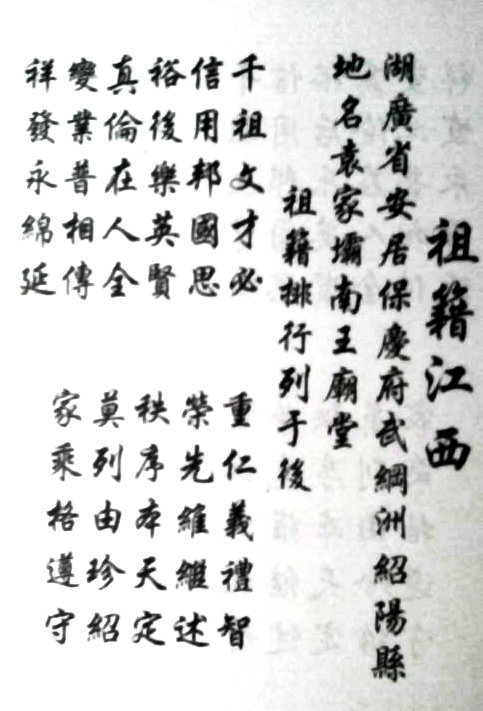 祖籍江西
湖廣省安居保慶府武綱洲紹陽縣
地名袁家壩南王廟堂
祖籍排行列于後
千祖文才必
信用邦國思
裕後樂英賢
真倫在人全
變業普相傳
祥發永綿延
重仁義禮智
榮先維繼述
秩序本天定
莫列由珍紹
家乘格遵守